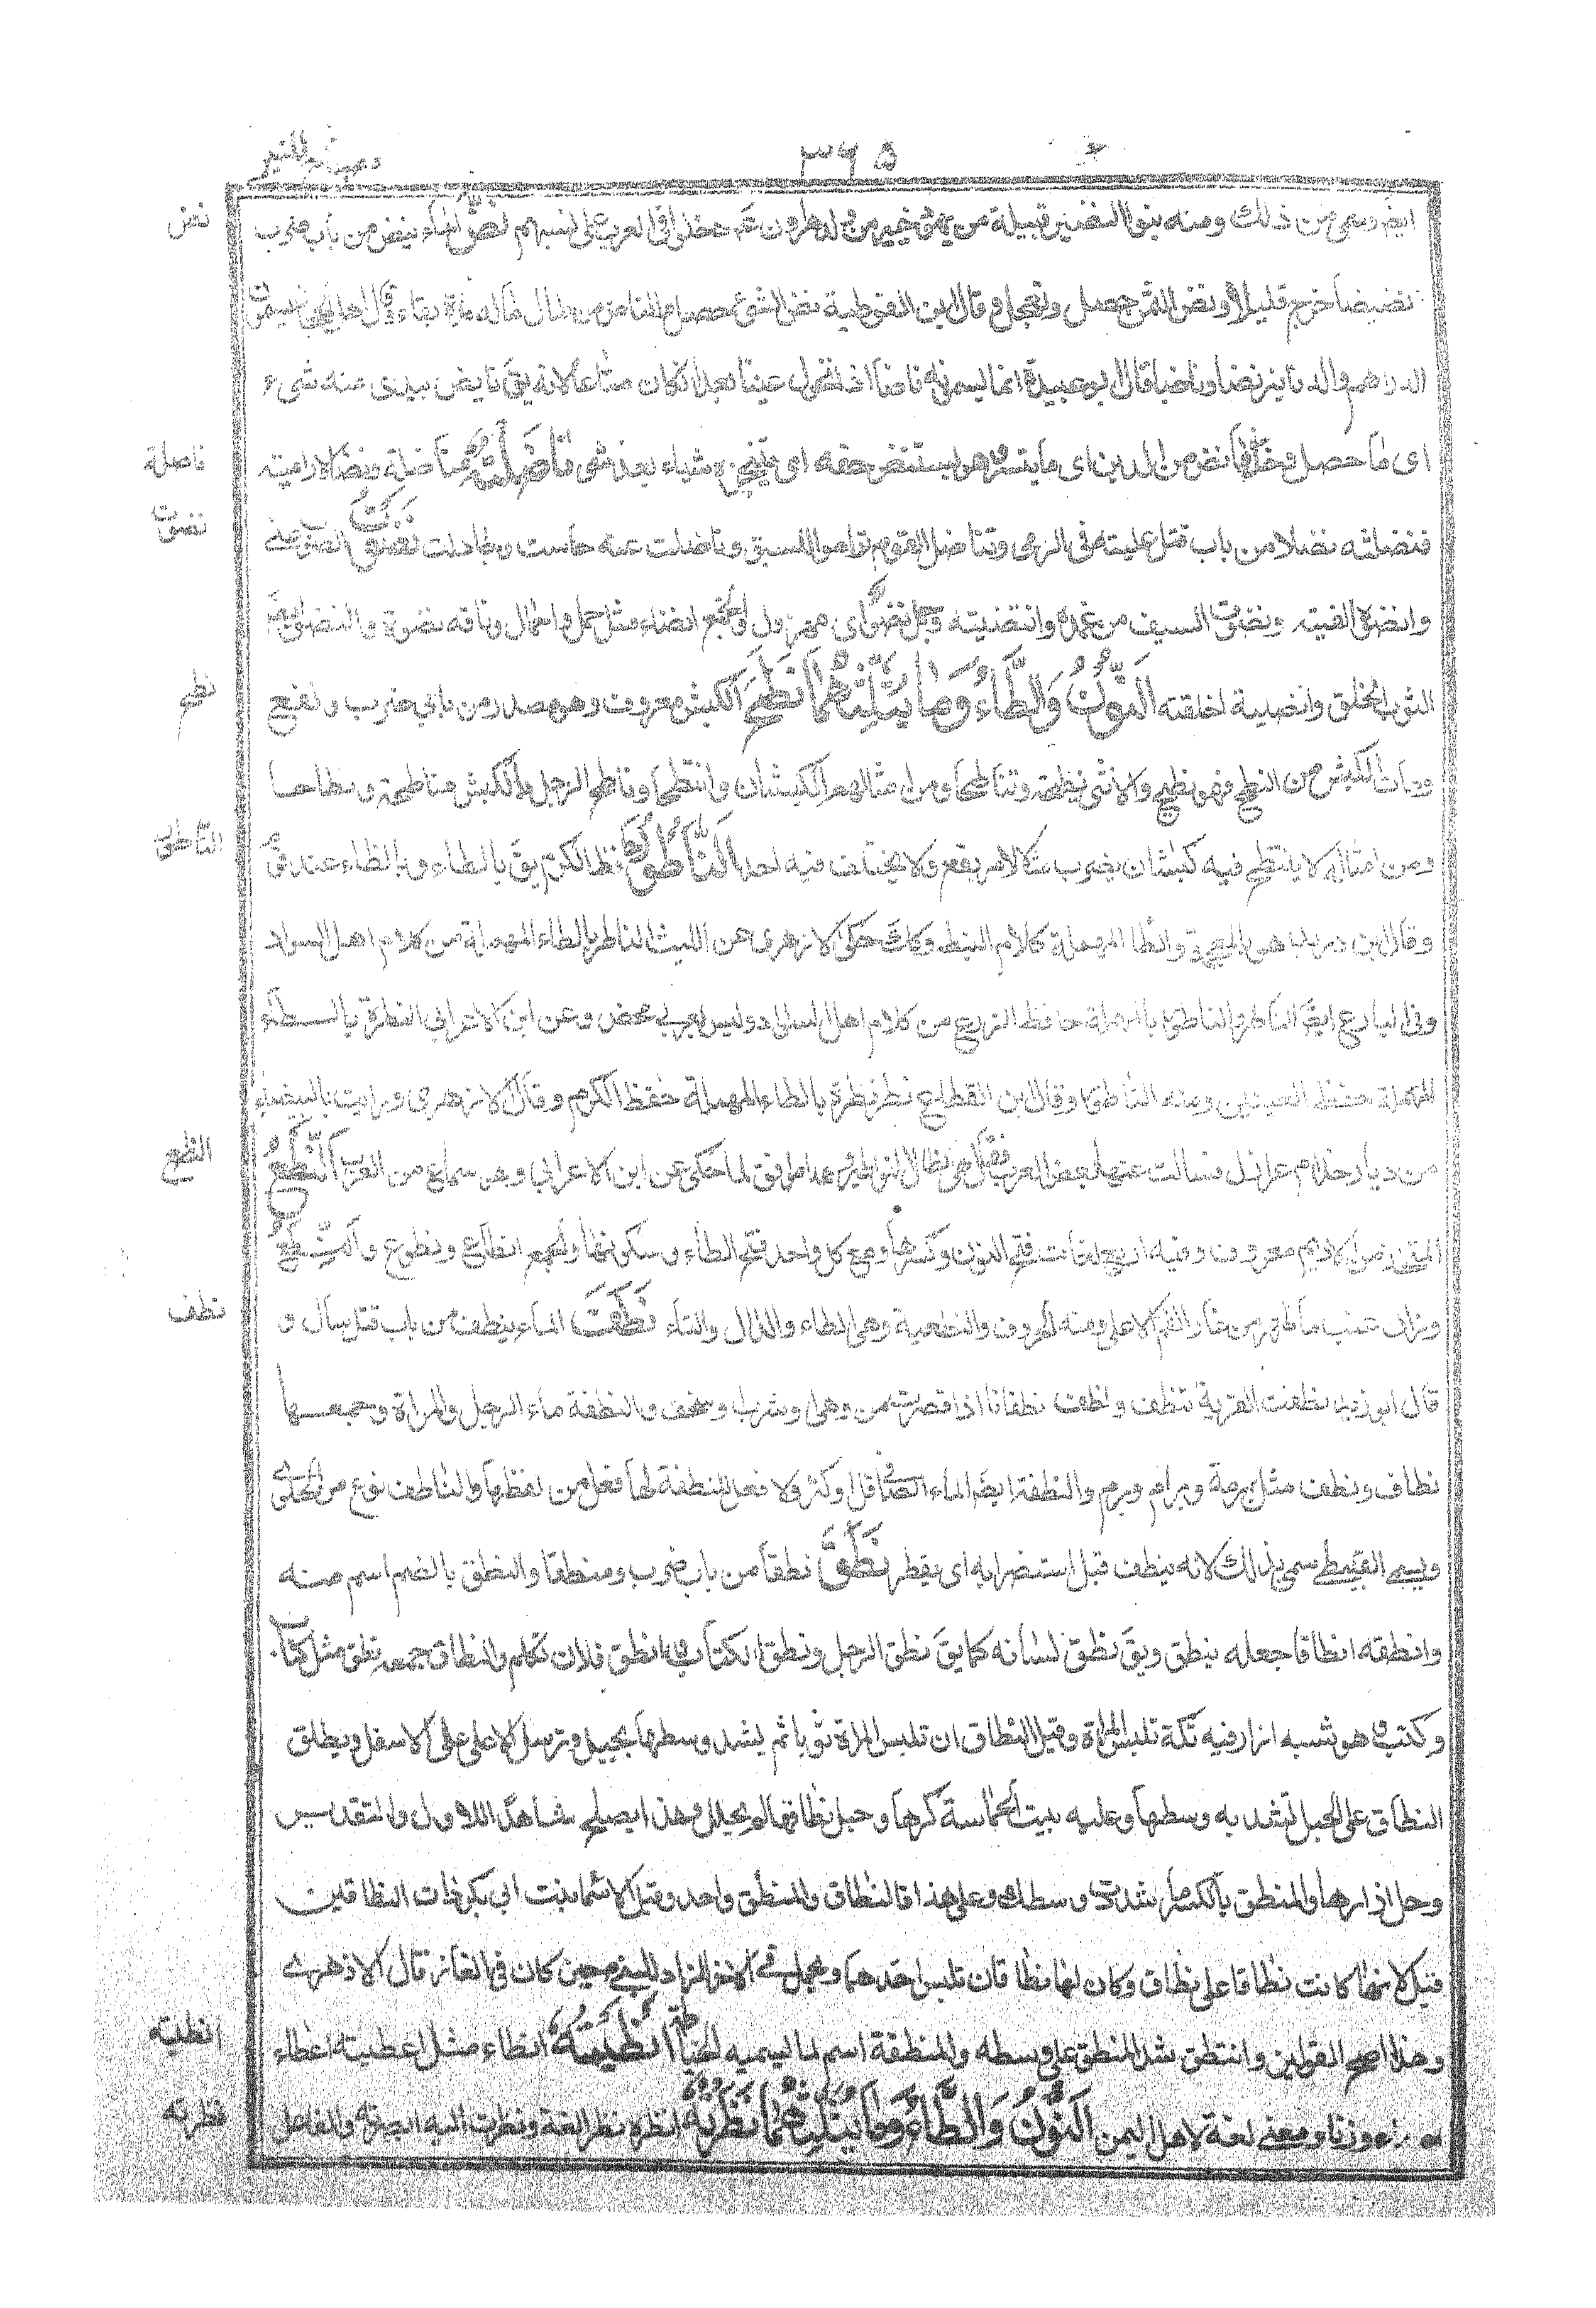 ٣٦٥
ايضً وسمى من ذلك ومنه بنوا النضير قبيلة من يهود خيبر من ولد هارون عَم دخلوا فى العرب على نسبهم نضَّ الماء ينض من باب ضرب
نض
نضيضا خرج قليلا ونض الثمن حصل وتعجل وقال ابن القوطية نض الشئ حصل والناض من المال ماله مادة بقاء وقال اهل الحجاز يسمون
الدراهم والدنانير نضا وناضا قال ابو عبيدة انما يسمونه ناضا اذا تحول عينا بعد ان كان متاعا لانه يقَ ما يض بيدى منه شىء
اى ما حصل وخذ ما نض من الدين اى ما تيسر وهو يستنض حقه اى يتنجزه شياء بعد شى ناضَلتُه مناضلة ونضالا راميته
ناضلته
فنضلته نضلا من باب قتل غلبته فى الرمى وتناضل القوم تراموا للسبق وناضلت عنه حاميت وجادلت نَضَوتُ الثوب عنى
نضوت
وانضوه القيته ونضوت السيف من غمده وانتضيته وجمل نضو اى مهزول والجمع انضاء مثل حمل واحمال وناقه نضوة والنضو ايضً
الثوب الخلق وانضيته اخلقته النُّونُ وَالطَّاءُ وَمَا يَثْلِثُهُمَا نَطَحَ الكبش معروف وهو مصدر من بابي ضرب ونفع
نطح
ومات الكبش من النطح فهو نطيح والانثى نطيحة وتناطحا ومن امثالهم الكبشان وانتطحا وناطح الرجل بالكبش مناطحة ونطاحا
ومن امثاله لا ينتطح فيه كبشان يضرب مثلا لامر يقع ولا يختلف فيه احد النَّاطُورُ ناظر الكرم يقَ بالطاء وبالظاء عند قوم
الناطور
وقال ابن دريد هو بالمعجمة والطا المهملة كلام النبط وكذلك حكى الازهرى عن الليث الناطر بالطاء المهملة من كلام اهل السواد
وفى البارع ايضً الناطر والناطور بالمهملة حافظ الزرع من كلام اهل السواد وليس بعربي محض وعن ابن الاعرابي النطرة بالطاء
المهملة حفظ العينين ومنه الناطور وقال ابن القطاع نطر نطرة بالطاء المهملة حفظ الكرم وقال الازهرى ورايت بالبيضاء
من ديار جذام عرازيل فسالت عنها بعض العرب فقال هى مظال النواطير وهذا موافق لما حكى عن ابن الاعرابي وهو سماع من العرب النِّطْعُ
النطع
المتخذ من الاديم معروف وفيه اربع لغات فتح النون وكسرها ومع كل واحد فتح الطاء وسكونها والجمع انطاع ونطوع والنِّطَعُ
وزان عنب ما ظهر من غار الفم الاعلى ومنه الحروف النطعية وهى الطاء والدال والتاء نَطَفَ الماء ينطف من باب قتل سال و
نطف
قال ابو زيد نطفت القربة تنطف وتنطف نطفانا اذا قطرت من وهى او شراب وسخف والنطفة ماء الرجل والمراة وجمعها
نطاف ونطف مثل برمة وبرام وبرم والنطفة ايضً الماء الصافى قل او كثر ولا فعل للنطفة لها فعل من لفظها والناطف نوع من الحلوى
ويسمى القبيطى سمى بذلك لانه ينطف قبل استضرابه اى يقطر نَطَقَ نطقا من باب ضرب ومنطقا والنطق بالضم اسم منه
وانطقه انطاقا جعله ينطق ويقَ نطق لسانه كما يقَ نطق الرجل ونطق الكتاب بين وانطق فلان تكلم والنطاق جمعه نطق مثل كتاب
وكتب هو شبه ازار فيه تكة تلبسه المراة وقيل النطاق ان تلبس المراة ثوبا ثم يشد وسطها بحبل وترسل الاعلى على الاسفل ويطلق
النطاق على الحبل تشد به وسطها وعليه بيت الحماسة كرها وحبل نطاقها لم يحلل وهذا يصلح شاهدا للاول والتقدير
وحل ازارها والمنطق بالكسر ما شددت به وسطك وعلى هذا فالنطاق والمنطق واحد وقيل لاسماء بنت ابي بكر ذات النطاقين
قيل لانها كانت نطاقا على نطاق وكان لها نطاقان تلبس احدهما وتحمل فى الاخر الزاد للنبى حين كان فى الغار قال الازهرى
وهذا اصح القولين وانتطق شد المنطق على وسطه والمنطقة اسم لما يسميه الحياصة اَنطَيتُه انطاء مثل اعطيته اعطاء
انطيته
وزنا ومعنى لغة لاهل اليمن النُّونُ وَالظَّاءُ وَمَا يَثْلِثُهُمَا نَظَرْتُهُ انظره نظر الغة ونظرت اليه ابصرته والفاعل
نظرته